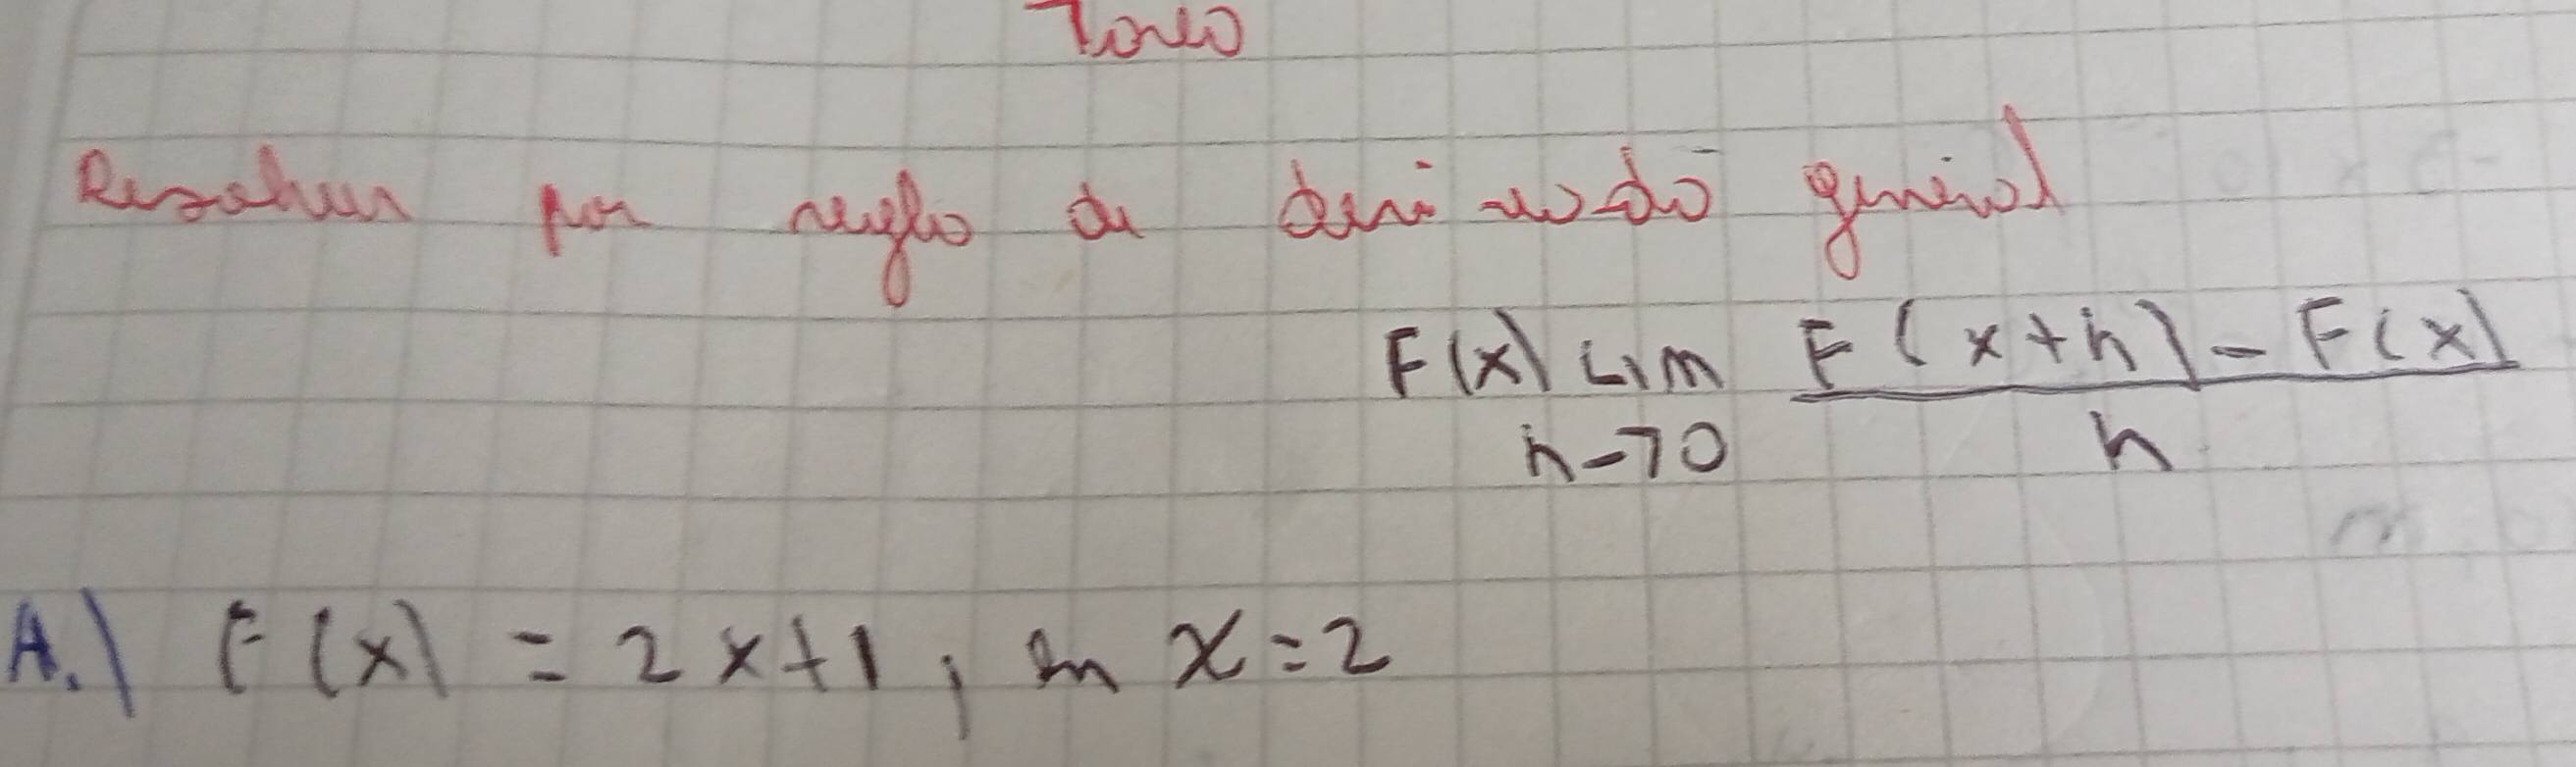 Tarea
Resolver por regla de derivada general
F(x) Lim F(x+h) - F(x)
h->0 h
A.) F(x) = 2x+1, en x=2